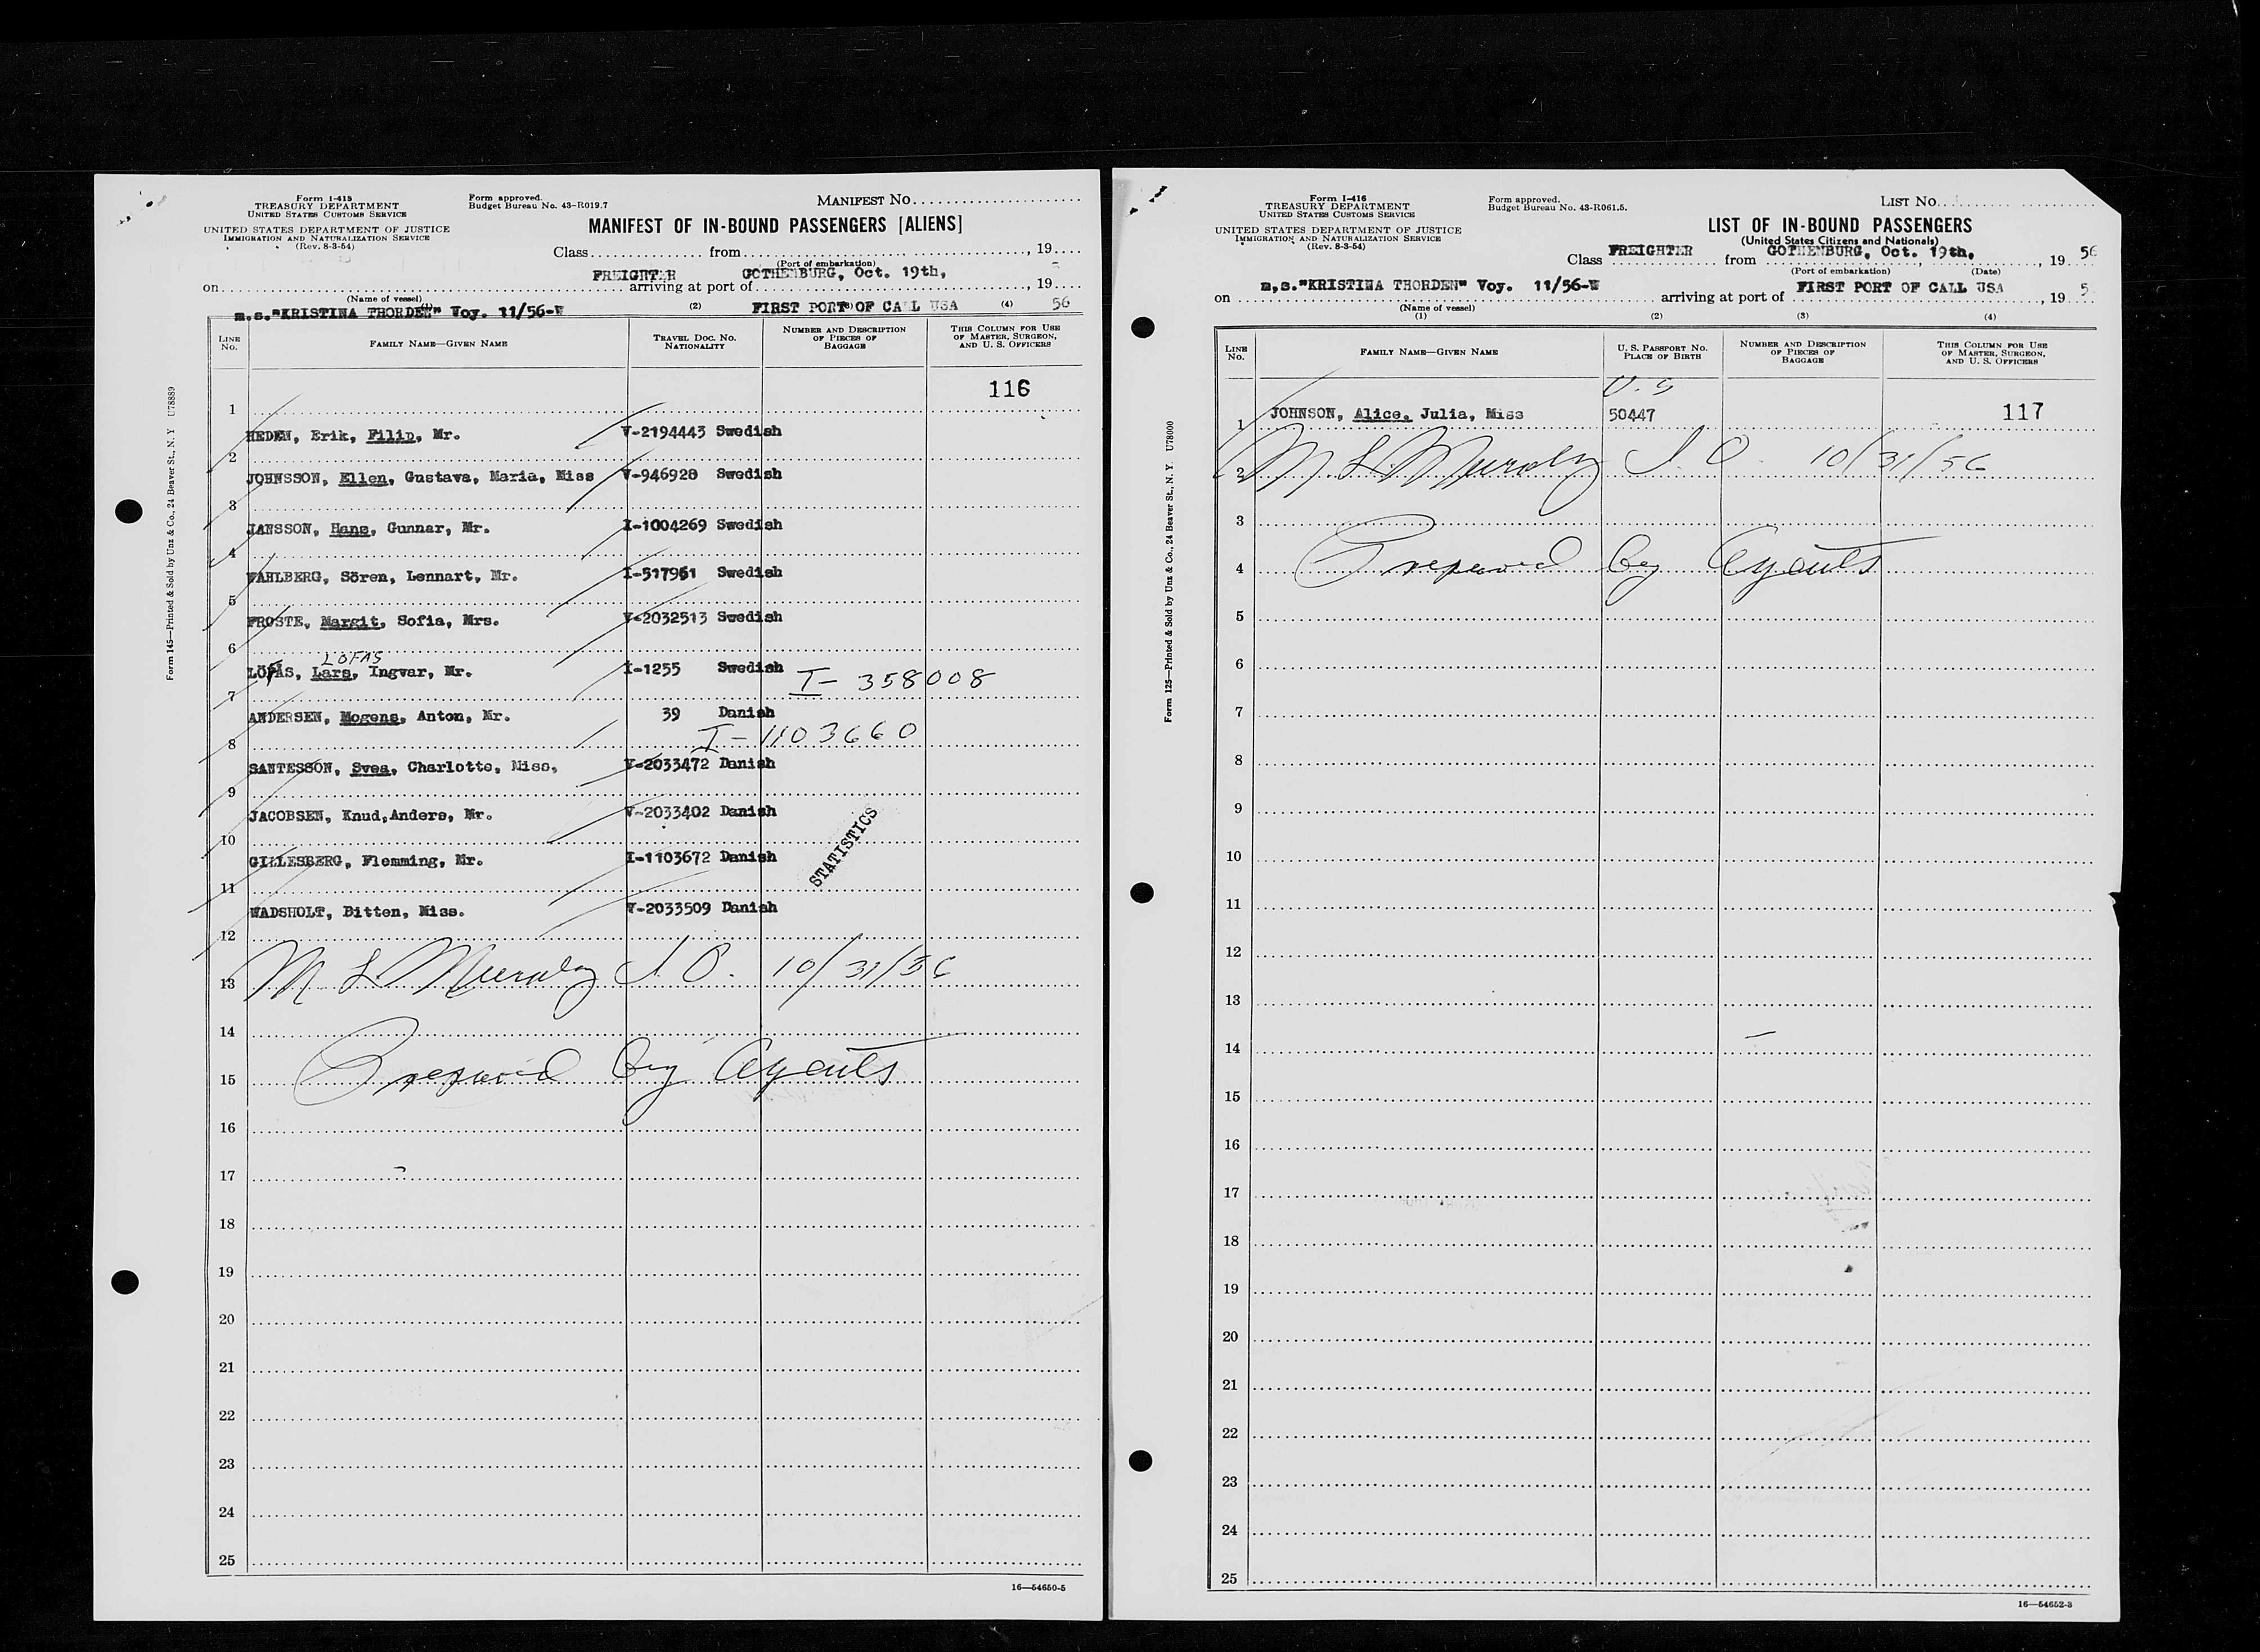 Form I-415
TREASURY DEPARTMENT
UNITED STATES CUSTOMS SERVICE
UNITED STATES DEPARTMENT OF JUSTICE
IMMIGRATION AND NATURALIZATION SERVICE
(Rev. 8-3-54)
Form approved.
Budget Bureau No. 43-R019.7
MANIFEST NO.
MANIFEST OF IN-BOUND PASSENGERS [ALIENS]
Class from , 19
(Port of embarkation)
FREIGHTER GOTHENBURG, Oct. 19th,
on arriving at port of , 19
(Name of vessel)
m.s."KRISTINA THORDEN" Voy. 11/56-W (2) FIRST PORT OF CALL USA (4) 56
LINE NO. FAMILY NAME—GIVEN NAME TRAVEL DOC. NO. NATIONALITY NUMBER AND DESCRIPTION OF PIECES OF BAGGAGE THIS COLUMN FOR USE OF MASTER, SURGEON, AND U. S. OFFICERS
116
1
HEDEN, Erik, Filip, Mr. V-2194443 Swedish
2
JOHNSSON, Ellen, Gustava, Maria, Miss V-946928 Swedish
3
JANSSON, Hans, Gunnar, Mr. I-1004269 Swedish
4
FAHLBERG, Sören, Lennart, Mr. I-517961 Swedish
5
FROSTE, Margit, Sofia, Mrs. V-2032513 Swedish
6
LÖFAS
LÖFÅS, Lars, Ingvar, Mr. I-1255 Swedish I-358008
7
ANDERSEN, Mogens, Anton, Mr. 39 Danish
8 I-1103660
SANTESSON, Svea, Charlotte, Miss, V-2033472 Danish
9
JACOBSEN, Knud,Anders, Mr. V-2033402 Danish
10
GILLESBERG, Flemming, Mr. I-1103672 Danish
STATISTICS
11
WADSHOLT, Bitten, Miss. V-2033509 Danish
12
13 M L Murphy I.O. 10/31/56
14
15 Prepared by Agents
16
17
18
19
20
21
22
23
24
25
16—54650-5
Form 145—Printed & Sold by Unz & Co., 24 Beaver St., N. Y U78889
Form I-416
TREASURY DEPARTMENT
UNITED STATES CUSTOMS SERVICE
UNITED STATES DEPARTMENT OF JUSTICE
IMMIGRATION AND NATURALIZATION SERVICE
(Rev. 8-3-54)
Form approved.
Budget Bureau No. 43-R061.5.
LIST NO.
LIST OF IN-BOUND PASSENGERS
(United States Citizens and Nationals)
Class FREIGHTER from GOTHENBURG, Oct. 19th, , 19 56
(Port of embarkation) (Date)
on m,s."KRISTINA THORDEN" Voy. 11/56-W arriving at port of FIRST PORT OF CALL USA , 19 5
(Name of vessel)
(1) (2) (3) (4)
LINE NO. FAMILY NAME—GIVEN NAME U. S. PASSPORT NO. PLACE OF BIRTH NUMBER AND DESCRIPTION OF PIECES OF BAGGAGE THIS COLUMN FOR USE OF MASTER, SURGEON, AND U. S. OFFICERS
U.S
1 JOHNSON, Alice, Julia, Miss 50447 117
2 M. L. Murphy I.O. 10/31/56
3
4 Prepared by Agents
5
6
7
8
9
10
11
12
13
14
15
16
17
18
19
20
21
22
23
24
25
16—54652-3
Form 125—Printed & Sold by Unz & Co., 24 Beaver St., N. Y. U78000